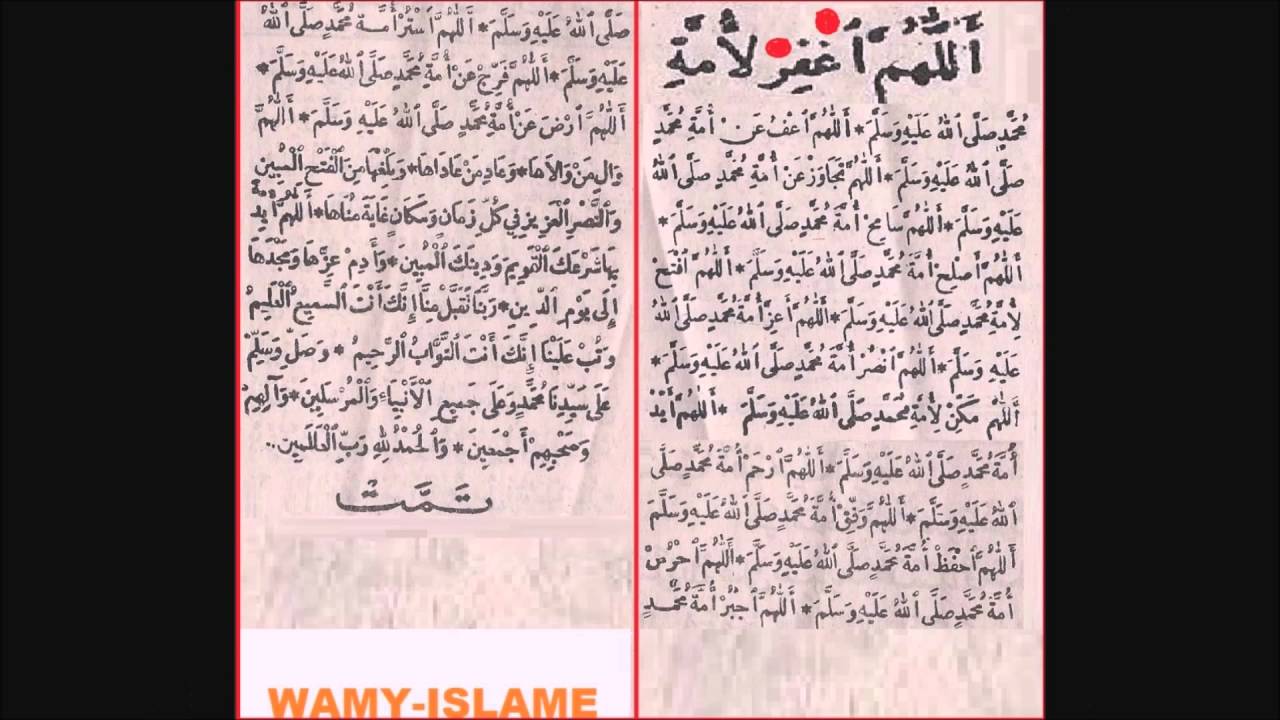 اَللَّهُمَّ اغْفِرْ لِأُمَّةِ
مُحَمَّدٍ صَلَّى اللهُ عَلَيْهِ وَسَلَّمَ * اَللَّهُمَّ اعْفُ عَنْ أُمَّةِ مُحَمَّدٍ
صَلَّى اللهُ عَلَيْهِ وَسَلَّمَ * اَللَّهُمَّ تَجَاوَزْ عَنْ أُمَّةِ مُحَمَّدٍ صَلَّى اللهُ
عَلَيْهِ وَسَلَّمَ * اَللَّهُمَّ سَامِحْ أُمَّةَ مُحَمَّدٍ صَلَّى اللهُ عَلَيْهِ وَسَلَّمَ *
اَللَّهُمَّ أَصْلِحْ أُمَّةَ مُحَمَّدٍ صَلَّى اللهُ عَلَيْهِ وَسَلَّمَ * اَللَّهُمَّ افْتَحْ
لِأُمَّةِ مُحَمَّدٍ صَلَّى اللهُ عَلَيْهِ وَسَلَّمَ * اَللَّهُمَّ أَعِزَّ أُمَّةَ مُحَمَّدٍ صَلَّى اللهُ
عَلَيْهِ وَسَلَّمَ * اَللَّهُمَّ انْصُرْ أُمَّةَ مُحَمَّدٍ صَلَّى اللهُ عَلَيْهِ وَسَلَّمَ *
اَللَّهُمَّ مَكِّنْ لِأُمَّةِ مُحَمَّدٍ صَلَّى اللهُ عَلَيْهِ وَسَلَّمَ * اَللَّهُمَّ أَيِّدْ
أُمَّةَ مُحَمَّدٍ صَلَّى اللهُ عَلَيْهِ وَسَلَّمَ * اَللَّهُمَّ ارْحَمْ أُمَّةَ مُحَمَّدٍ صَلَّى
اللهُ عَلَيْهِ وَسَلَّمَ * اَللَّهُمَّ وَفِّقْ أُمَّةَ مُحَمَّدٍ صَلَّى اللهُ عَلَيْهِ وَسَلَّمَ
اَللَّهُمَّ احْفَظْ أُمَّةَ مُحَمَّدٍ صَلَّى اللهُ عَلَيْهِ وَسَلَّمَ * اَللَّهُمَّ احْرُسْ
أُمَّةَ مُحَمَّدٍ صَلَّى اللهُ عَلَيْهِ وَسَلَّمَ * اَللَّهُمَّ اجْبُرْ أُمَّةَ مُحَمَّدٍ
صَلَّى اللهُ عَلَيْهِ وَسَلَّمَ * اَللَّهُمَّ اسْتُرْ أُمَّةَ مُحَمَّدٍ صَلَّى اللهُ
عَلَيْهِ وَسَلَّمَ * اَللَّهُمَّ فَرِّجْ عَنْ أُمَّةِ مُحَمَّدٍ صَلَّى اللهُ عَلَيْهِ وَسَلَّمَ *
اَللَّهُمَّ ارْضَ عَنْ أُمَّةِ مُحَمَّدٍ صَلَّى اللهُ عَلَيْهِ وَسَلَّمَ * اَللَّهُمَّ
وَالِ مَنْ وَالَاهَا * وَعَادِ مَنْ عَادَاهَا * وَبَلِّغْهَا مِنَ الْفَتْحِ الْمُبِينِ
وَالنَّصْرِ الْعَزِيزِ فِي كُلِّ زَمَانٍ وَمَكَانٍ غَايَةَ مُنَاهَا * اَللَّهُمَّ أَيِّدْ
بِهَا شَرْعَكَ الْقَوِيمَ وَدِينَكَ الْمُبِينَ * وَأَدِمْ عِزَّهَا وَمَجْدَهَا
إِلَى يَوْمِ الدِّينِ * رَبَّنَا تَقَبَّلْ مِنَّا إِنَّكَ أَنْتَ السَّمِيعُ الْعَلِيمُ
وَتُبْ عَلَيْنَا إِنَّكَ أَنْتَ التَّوَّابُ الرَّحِيمُ * وَصَلِّ وَسَلِّمْ
عَلَى سَيِّدِنَا مُحَمَّدٍ وَعَلَى جَمِيعِ الْأَنْبِيَاءِ وَالْمُرْسَلِينَ * وَآلِهِمْ
وَصَحْبِهِمْ أَجْمَعِينَ * وَالْحَمْدُ لِلَّهِ رَبِّ الْعَالَمِينَ ..
تَمَّتْ
WAMY-ISLAME